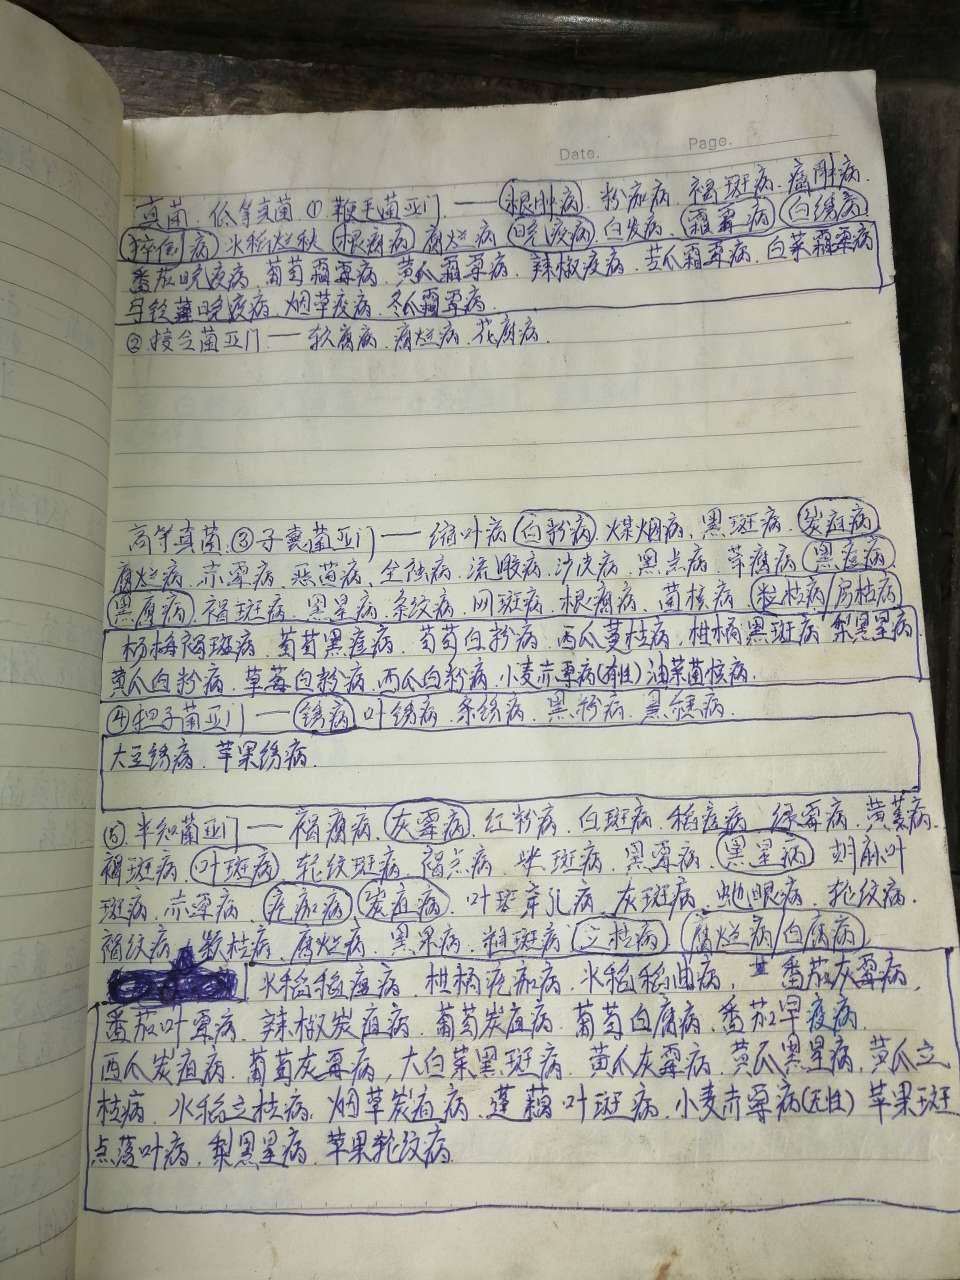 Date. Page.
真菌. 低等真菌 ① 鞭毛菌亚门 —— 根肿病. 粉痂病. 褐斑病. 瘤肿病.
猝倒病 水稻烂秧 根腐病. 腐烂病 晚疫病. 白发病. 霜霉病 白绣病.
番茄晚疫病. 葡萄霜霉病. 黄瓜霜霉病. 辣椒疫病. 苦瓜霜霉病. 白菜霜霉病
马铃薯晚疫病. 烟草疫病. 冬瓜霜霉病.
② 接合菌亚门 —— 软腐病. 腐烂病. 花腐病.
高等真菌. ③ 子囊菌亚门 —— 缩叶病 白粉病 煤烟病. 黑斑病. 炭疽病
腐烂病. 赤霉病. 恶苗病. 全蚀病. 流胶病. 黑点病. 茎腐病 黑痘病
黑腐病 褐斑病. 黑星病. 条纹病. 网斑病. 根腐病. 菌核病. 房枯病
杨梅褐斑病. 葡萄黑痘病. 葡萄白粉病. 西瓜蔓枯病. 柑桔黑斑病 梨黑星病
黄瓜白粉病. 草莓白粉病. 西瓜白粉病. 小麦赤霉病(有性) 油菜菌核病.
④ 担子菌亚门 —— 绣病 叶绣病. 条绣病. 黑粉病. 黑穗病.
大豆绣病. 苹果绣病.
⑤. 半知菌亚门 —— 褐腐病. 灰霉病. 红粉病. 白斑病. 稻瘟病. 绿霉病. 黄萎病.
褐斑病. 叶斑病. 轮纹斑病. 褐点病. 紫斑病. 黑霉病. 黑星病 胡麻叶
斑病. 赤霉病. 疮痂病 炭疽病. 叶斑穿孔病. 灰斑病. 蛇眼病. 轮纹病.
褐纹病. 颖枯病. 腐烂病. 黑果病. 粗斑病 立枯病. 腐烂病 白腐病
水稻稻瘟病. 柑桔疮痂病. 水稻稻曲病, 番茄灰霉病,
番茄叶霉病. 辣椒炭疽病. 葡萄炭疽病. 葡萄白腐病. 番茄早疫病.
西瓜炭疽病. 葡萄灰霉病, 大白菜黑斑病. 黄瓜灰霉病. 黄瓜黑星病. 黄瓜立
枯病. 水稻立枯病. 烟草炭疽病. 莲藕叶斑病. 小麦赤霉病(无性) 苹果斑
点落叶病. 梨黑星病. 苹果轮纹病.